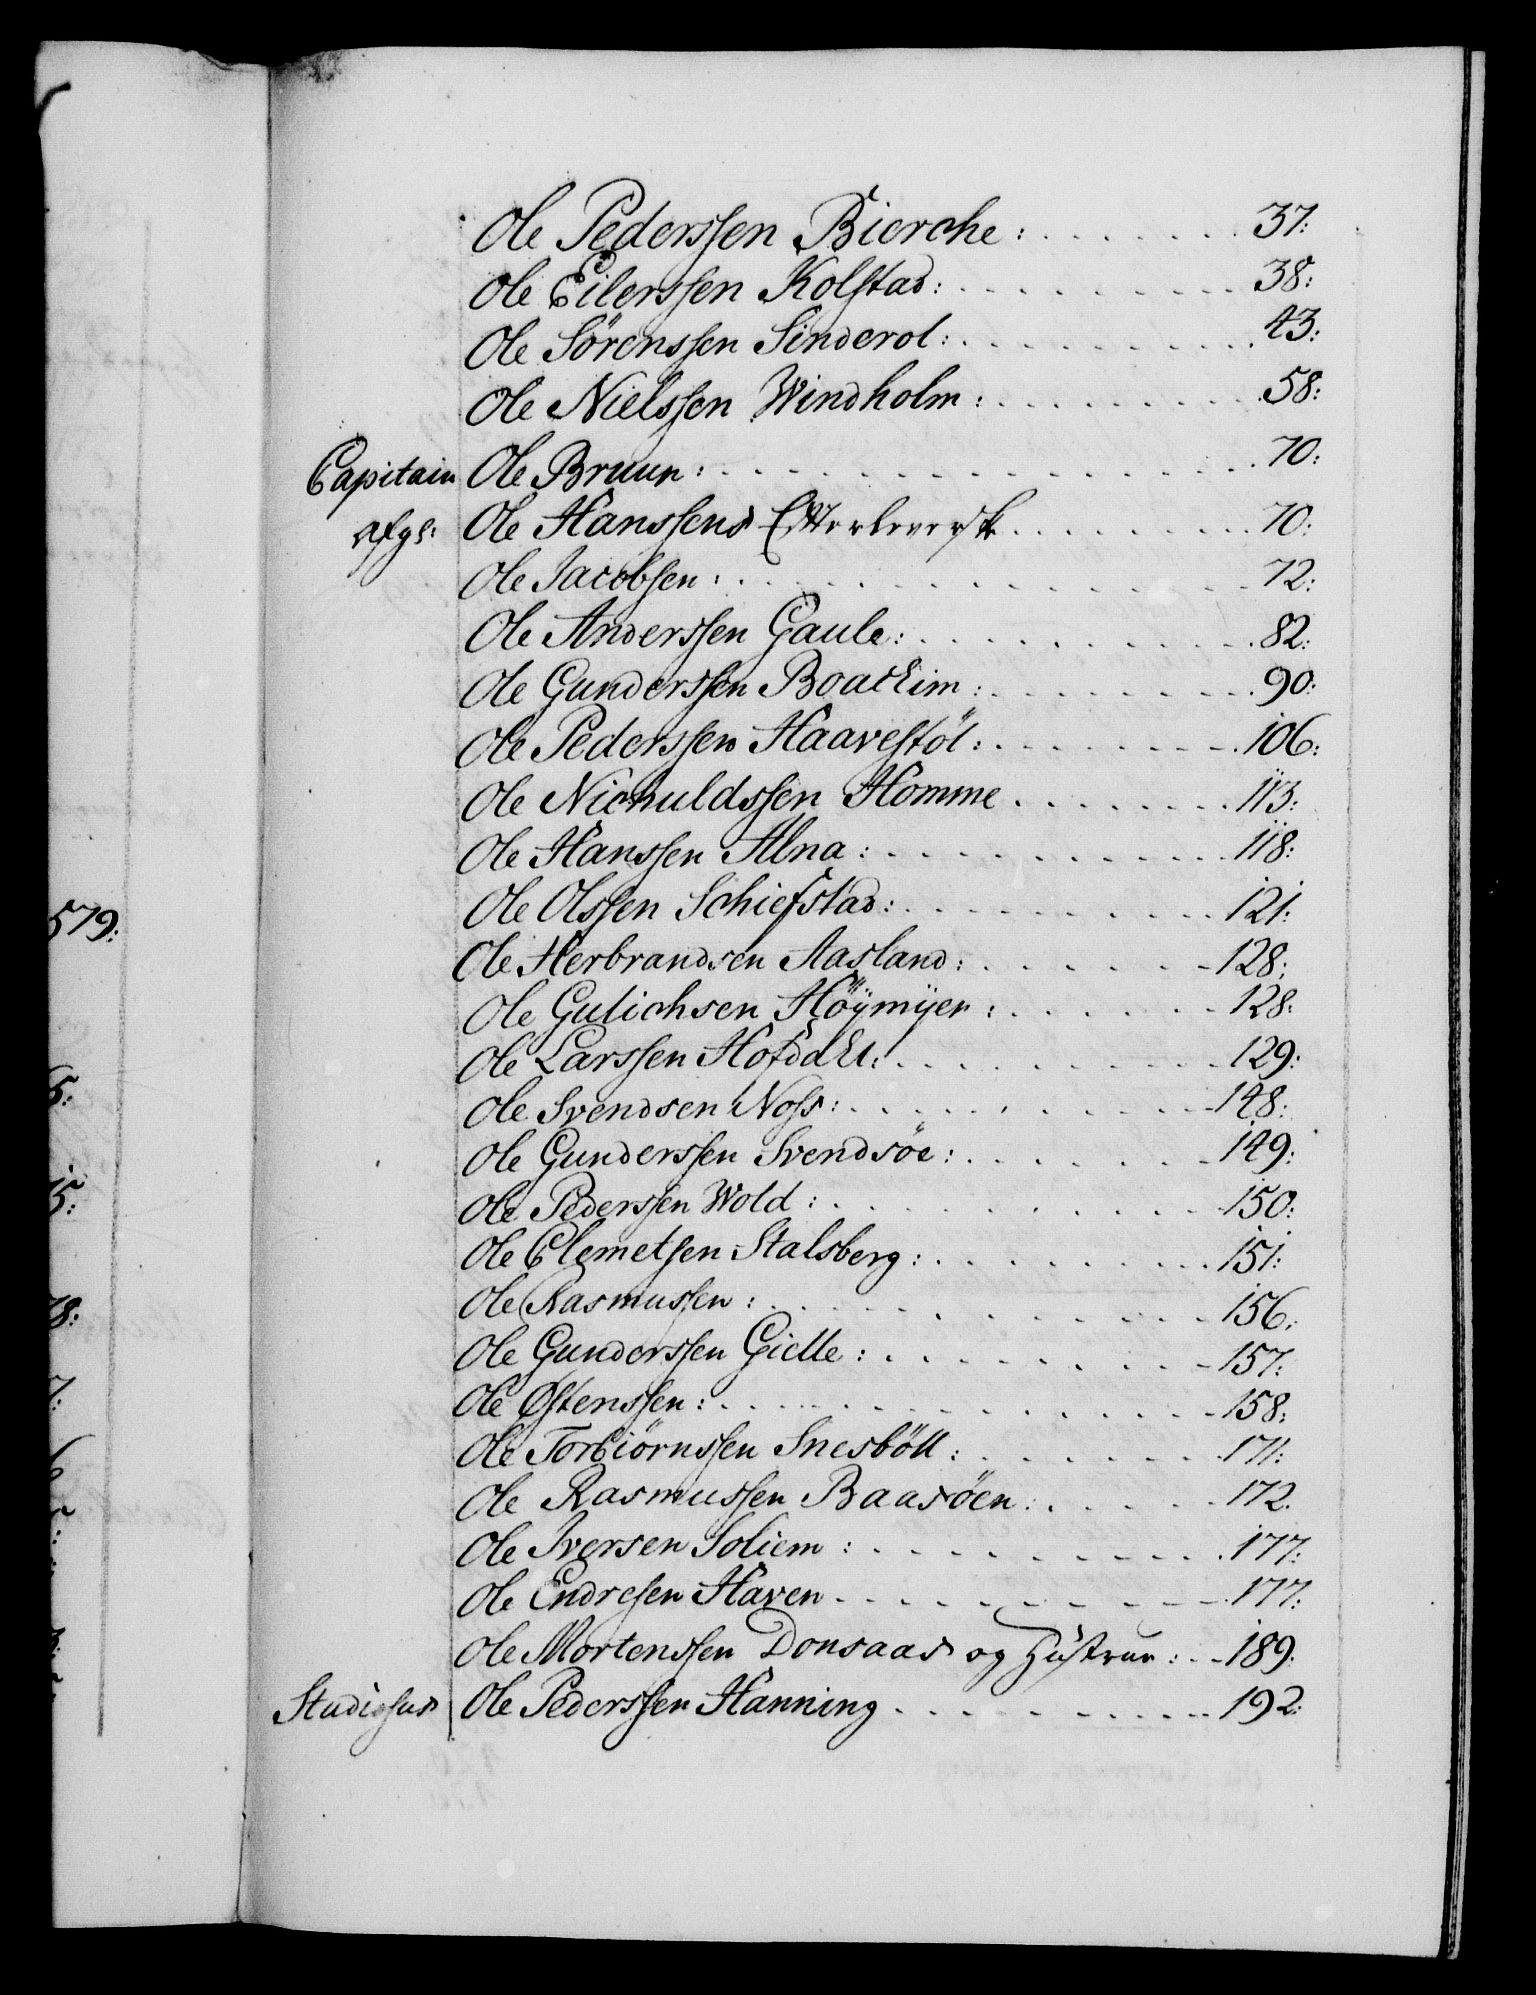 Ole Pederssen Bierche: . . . . . . 37:
Ole Eilerssen Kolstad: . . . . . . . . 38:
Ole Sörenssen Sinderol: . . . . . . . . 43:
Ole Nielssen Windholm: . . . . . . . . 58:
Capitain Ole Bruun: . . . . . . . . . . . . 70:
afgl: Ole Hanssens Efterleversk . . . . . . . . 70:
Ole Jacobsen: . . . . . . . . . . . . 72:
Ole Anderssen Gaule: . . . . . . . . . 82:
Ole Gunderssen Boacheim: . . . . . . . . 90:
Ole Pederssen Haavestöl: . . . . . . . . 106:
Ole Nichuldssen Homme . . . . . . . . 113:
Ole Hanssen Alna: . . . . . . . . . . 118:
Ole Olssen Schiefstad: . . . . . . . . . 121:
Ole Herbrandsen Aasland: . . . . . . 128:
Ole Gulichsen Höÿmÿer: . . . . . . 128:
Ole Larssen Hofdahl: . . . . . . . . 129:
Ole Svendsen Noss: . . . . . . . . . . 148:
Ole Gunderssen Svendsöe: . . . . . . 149:
Ole Pederssen Wold: . . . . . . . . . . 150:
Ole Clemetsen Stalsberg: . . . . . . . . 151:
Ole Rasmussen: . . . . . . . . . . . 156:
Ole Gunderssen Gielle: . . . . . . . . 157:
Ole Østenssen: . . . . . . . . . . . . 158:
Ole Torbiörnssen Snesböll: . . . . . . 171:
Ole Rasmussen Baasöen: . . . . . 172.
Ole Iversen Soliem: . . . . . . . . . 177:
Ole Endresen Haven . . . . . . . . . 177:
Ole Mortenssen Donsaas og Hustrue: . . 189:
Studiosus Ole Pederssen Hanning . . . . . . . . . 192:
579:
15:
78:
7: